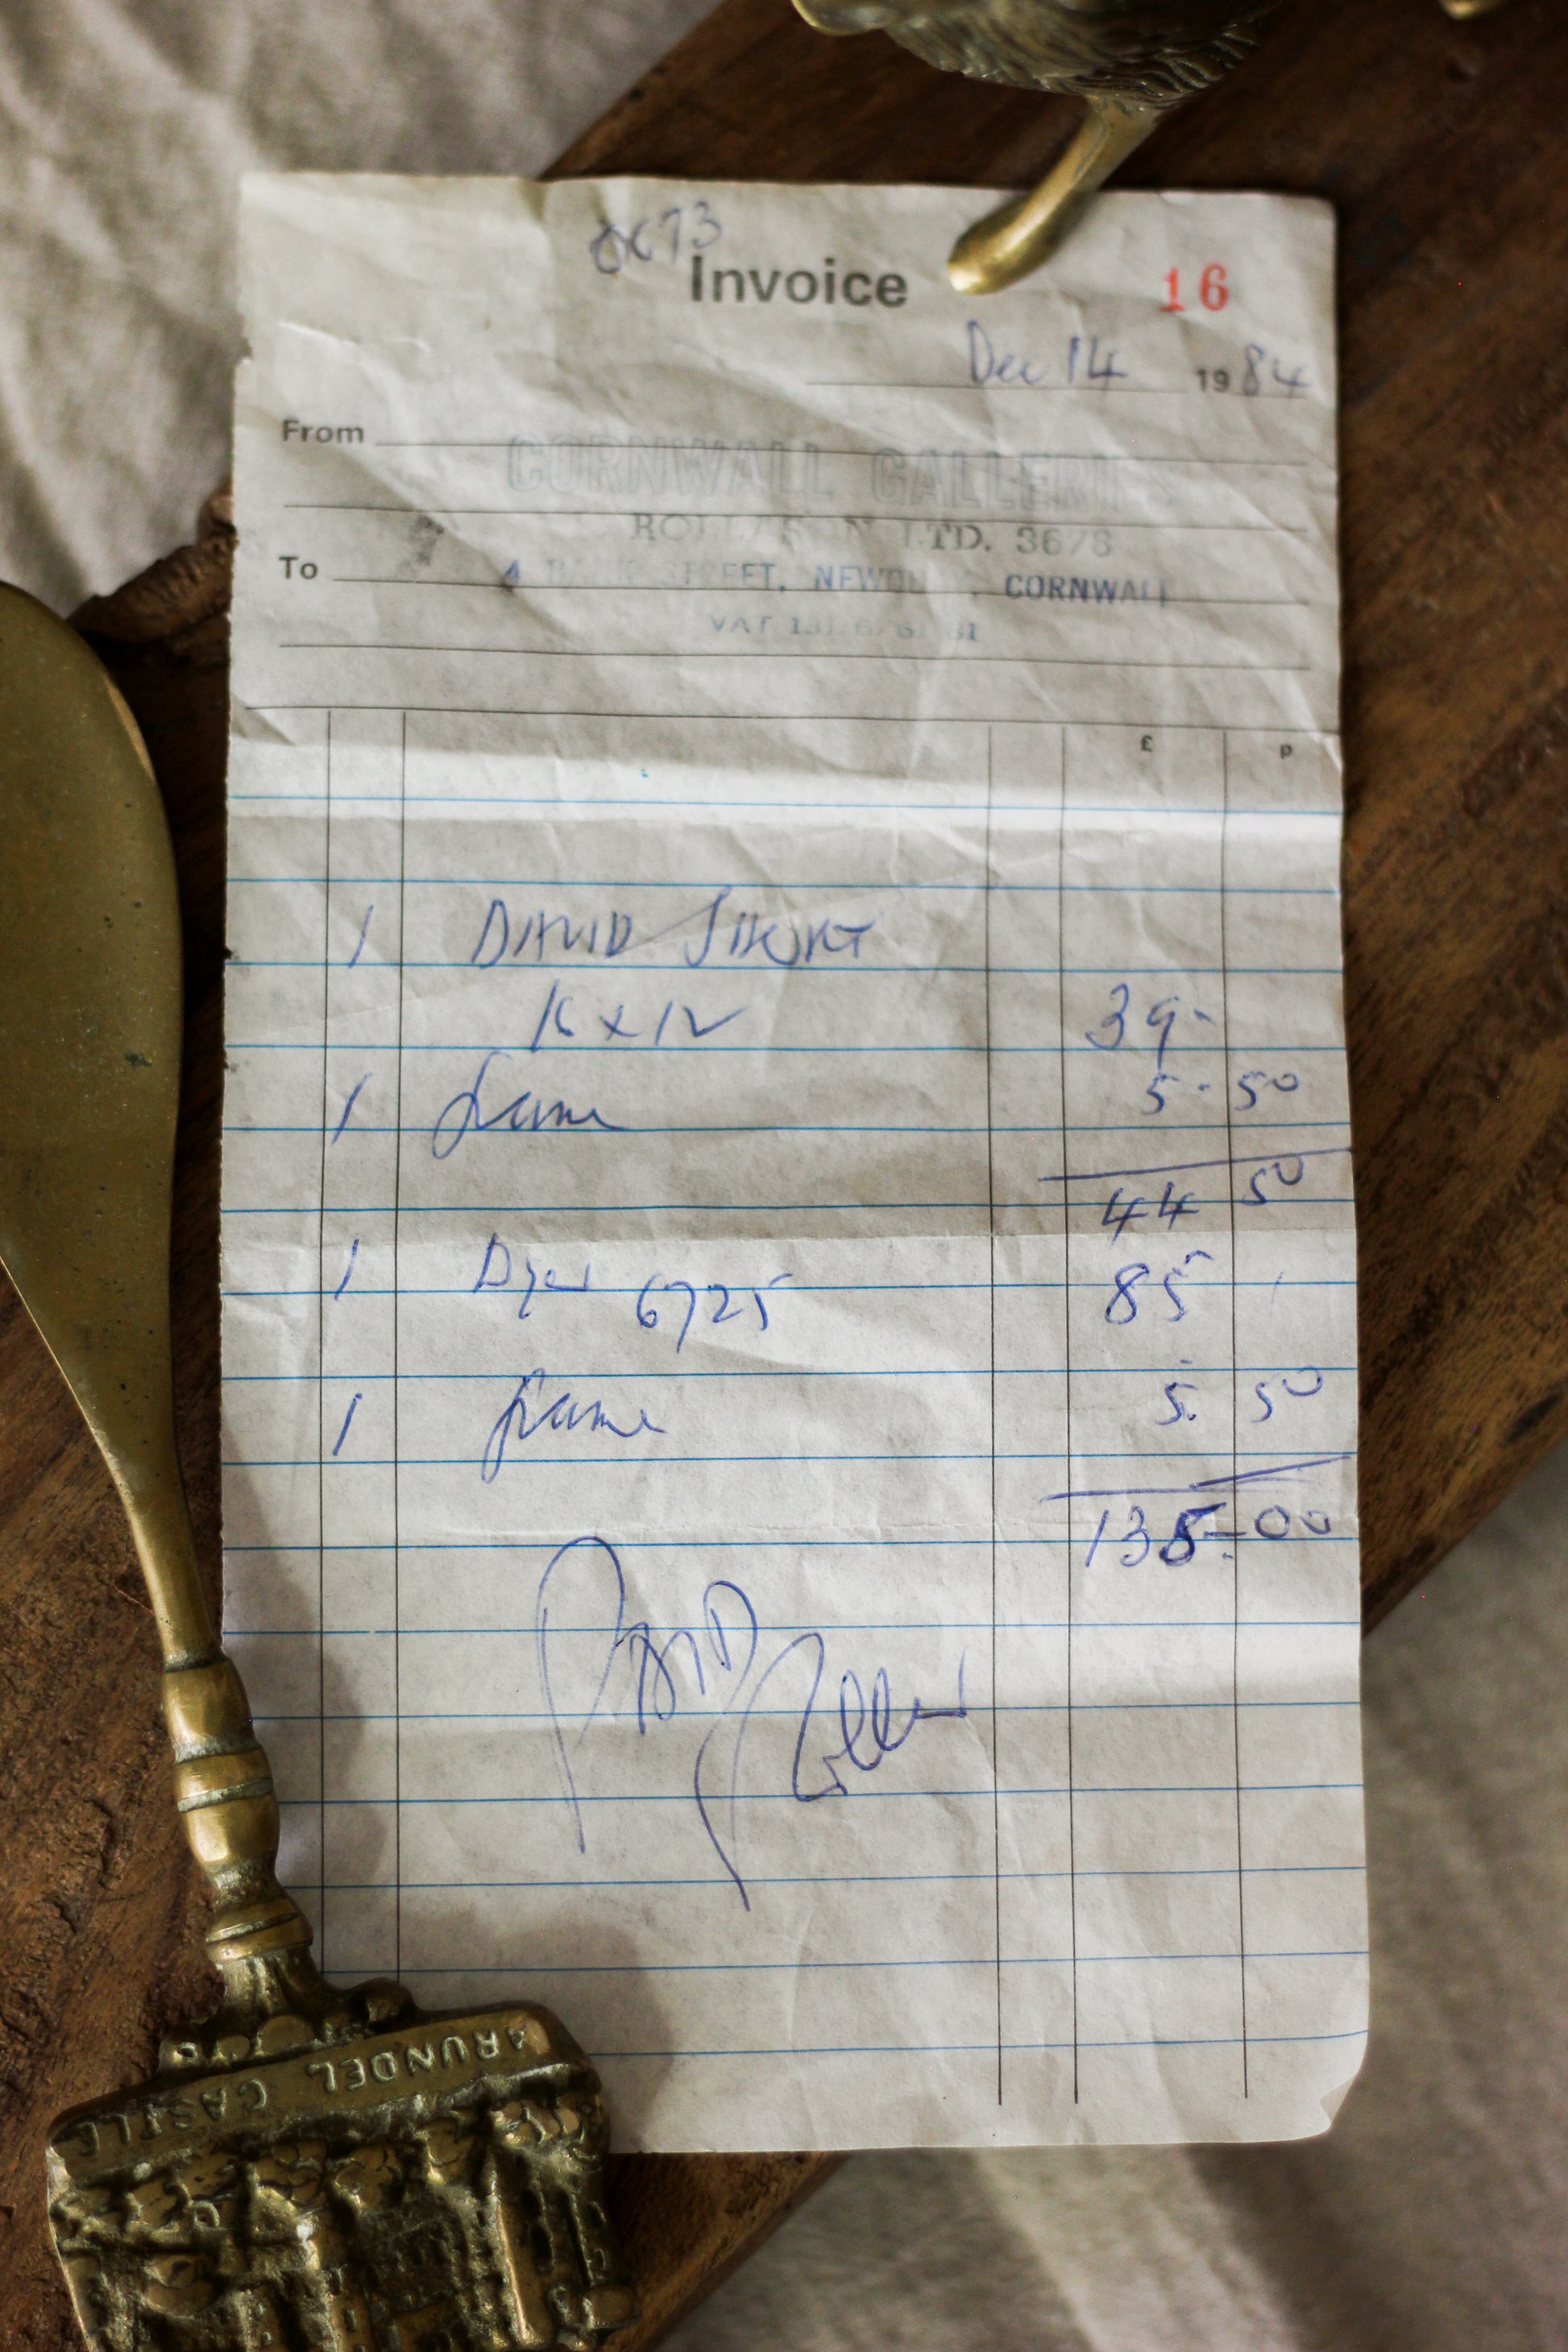 Invoice
16
Dec 14 1984
From
CORNWALL GALLERIES
LTD. 3678
To
4 STREET, NEWQUAY, CORNWALL
VAT 131
£ p
1 DAVID SHORT
16 x 12 39-
1 frame 5-50
44 50
1 Dyer 6725 85
1 frame 5. 50
135-00
Paid
ARUNDEL CASTLE